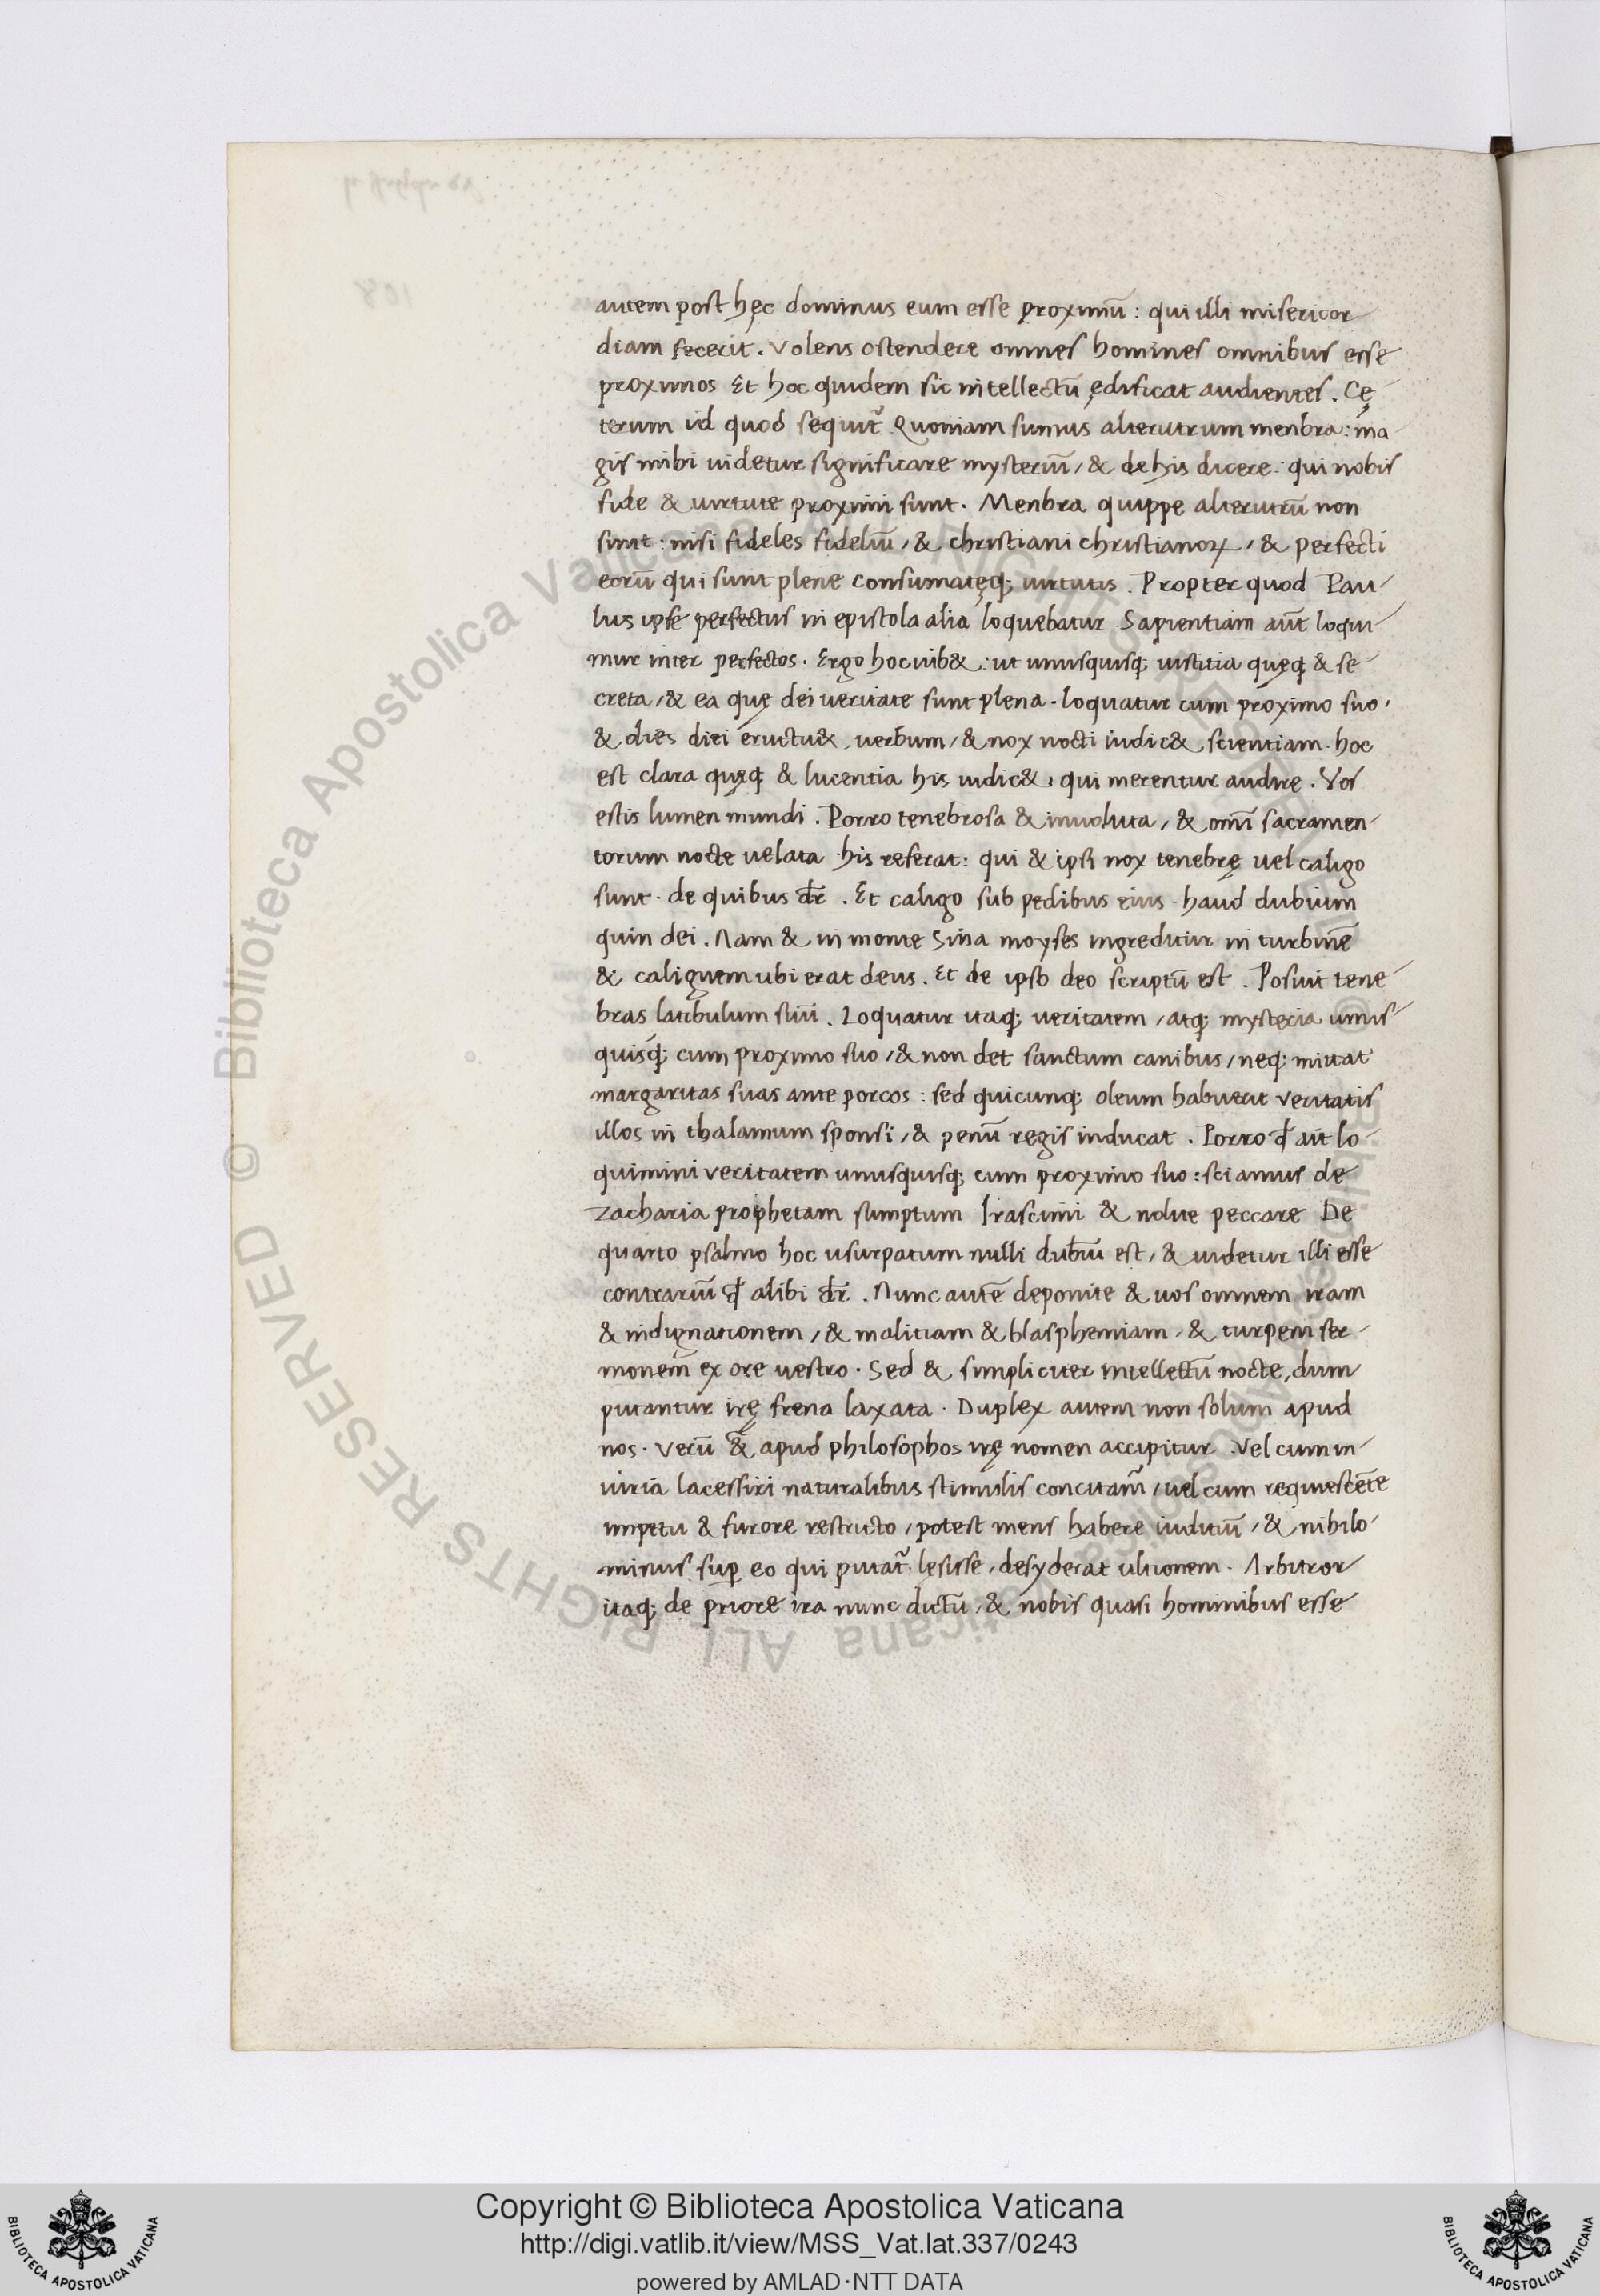 autem post hęc dominus eum esse proximū : qui illi misericor
diam fecerit . Volens ostendere omnes homines omnibus esse
proximos Et hoc quidem sic intellectū ędificat audientes . Cę
terum id quod sequit᷑ Quoniam sumus alterutrum menbra : ma
gis mihi uidetur significare mysteriū / & de his dicere : qui nobis
fide & uirtute proximi sunt . Menbra quippe alterutrū non
sunt : nisi fideles fideliū / & christiani christianoꝝ / & perfecti
eorū qui sunt plene consumatęq; uirtutis . Propter quod Pau
lus ipse perfectus in epistola alia loquebatur . Sapientiam aūt loqui
mur inter perfectos . Ergo hoc iub& : ut unusquisq; iustitia quęq; & se
creta / & ea quę dei ueritate sunt plena . loquatur cum proximo suo .
& dies diei eructu& uerbum / & nox nocti indic& scientiam . hoc
est clara quęq; & lucentia his indic& , qui merentur audire . Vos
estis lumen mundi . Porro tenebrosa & inuoluta / & omī sacramen
torum nocte uelata his referat : qui & ipsi nox tenebrę uel caligo
sunt . de quibus dr̄ . Et caligo sub pedibus eius . haud dubium
quin dei . Nam & in monte Sina moyses ingreditur in turbinē
& caliginem ubi erat deus . Et de ipso deo scriptū est . Posuit tene
bras latibulum suū . Loquatur itaq; ueritatem / atq; mysteria unus
quisq; cum proximo suo / & non det sanctum canibus / neq; mittat
margaritas suas ante porcos : sed quicunq; oleum habuerit veritatis
illos in thalamum sponsi / & penū regis inducat . Porro ꝙ ait lo
quimini veritatem unusquisq; cum proximo suo : sciamus de
Zacharia prophetam sumptum Irascimi & nolite peccare De
quarto psalmo hoc usurpatum nulli dubiū est / & uidetur illi esse
contrariū ꝙ alibi dr̄ . Nunc autē deponite & uos omnem iram
& indignationem / & malitiam & blasphemiam / & turpem ser
monem ex ore uestro . Sed & simpliciter intellectū nocte, dum
putantur irę frena laxata . Duplex autem non solum apud
nos . Verū & apud philosophos irę nomen accipitur . Vel cum in
iuria lacessiri naturalibus stimulis concitam᷑ / uel cum requiescēte
impetu & furore restricto / potest mens habere iuditiū / & nihilo
minus suꝑ eo qui putat᷑ lęsisse / desyderat ultionem . Arbitror
itaq; de priore ira nunc dictū / & nobis quasi hominibus esse
Copyright © Biblioteca Apostolica Vaticana
http://digi.vatlib.it/view/MSS_Vat.lat.337/0243
powered by AMLAD·NTT DATA
BIBLIOTECA APOSTOLICA VATICANA
BIBLIOTECA APOSTOLICA VATICANA